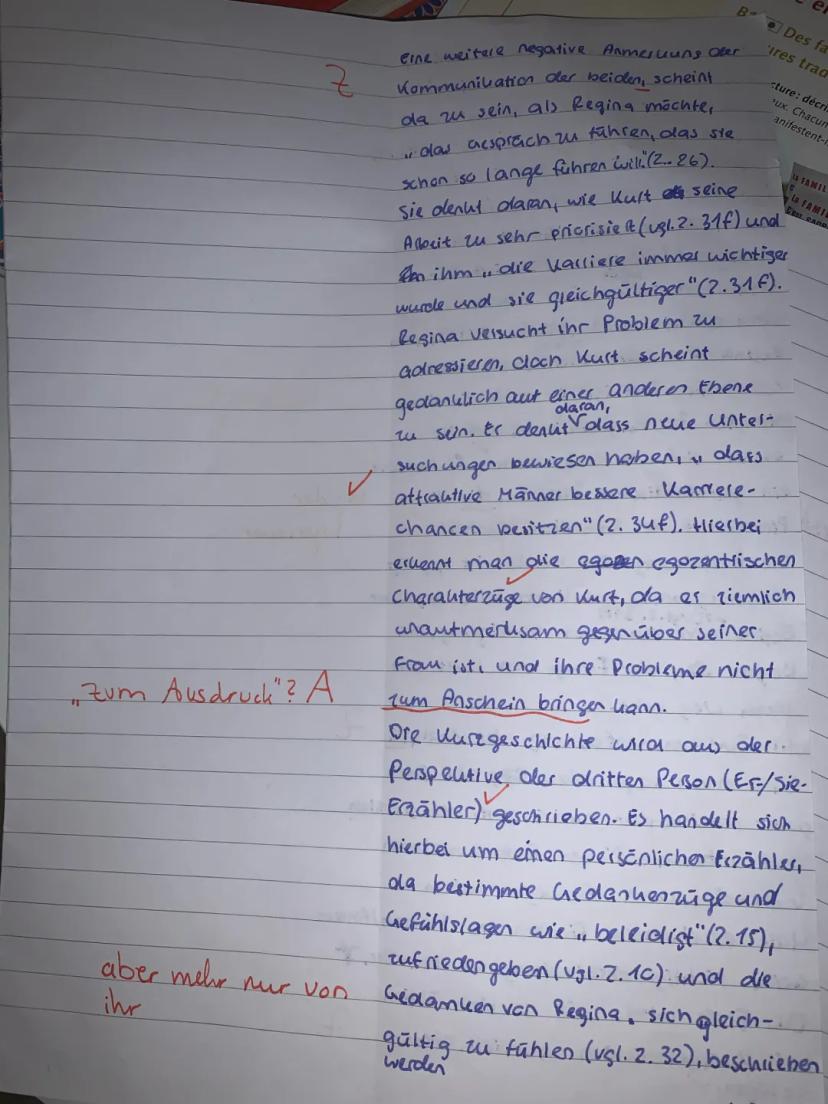 eine weitere negative Anmerkung der
Z
Kommunikation der beiden, scheint
da zu sein, als Regina möchte,
„das Gespräch zu führen, das sie
schon so lange führen will."(Z. 26).
Sie denkt daran, wie Kurt seine
Arbeit zu sehr priorisiert (vgl. Z. 31f) und
ihm „die Karriere immer wichtiger
wurde und sie gleichgültiger"(Z. 31f).
Regina versucht ihr Problem zu
adressieren, doch Kurt scheint
gedanklich auf einer anderen Ebene
zu sein. Er denkt daran, dass neue Unter-
suchungen bewiesen haben, „dass
attraktive Männer bessere Karriere-
chancen besitzen"(Z. 34f). Hierbei
erkennt man die egozentrischen
Charakterzüge von Kurt, da er ziemlich
unaufmerksam gegenüber seiner
Frau ist, und ihre Probleme nicht
„zum Ausdruck"? A
zum Anschein bringen kann.
Die Kurzgeschichte wird aus der
Perspektive der dritten Person (Er-/Sie-
Erzähler) geschrieben. Es handelt sich
hierbei um einen persönlichen Erzähler,
da bestimmte Gedankenzüge und
Gefühlslagen wie „beleidigt"(Z. 15),
zufriedengeben (vgl. Z. 10) und die
aber mehr nur von
ihr
Gedanken von Regina, sich gleich-
gültig zu fühlen (vgl. Z. 32), beschrieben
werden
Des fa
ires trad
cture: décri
ux. Chacun
anifestent-i